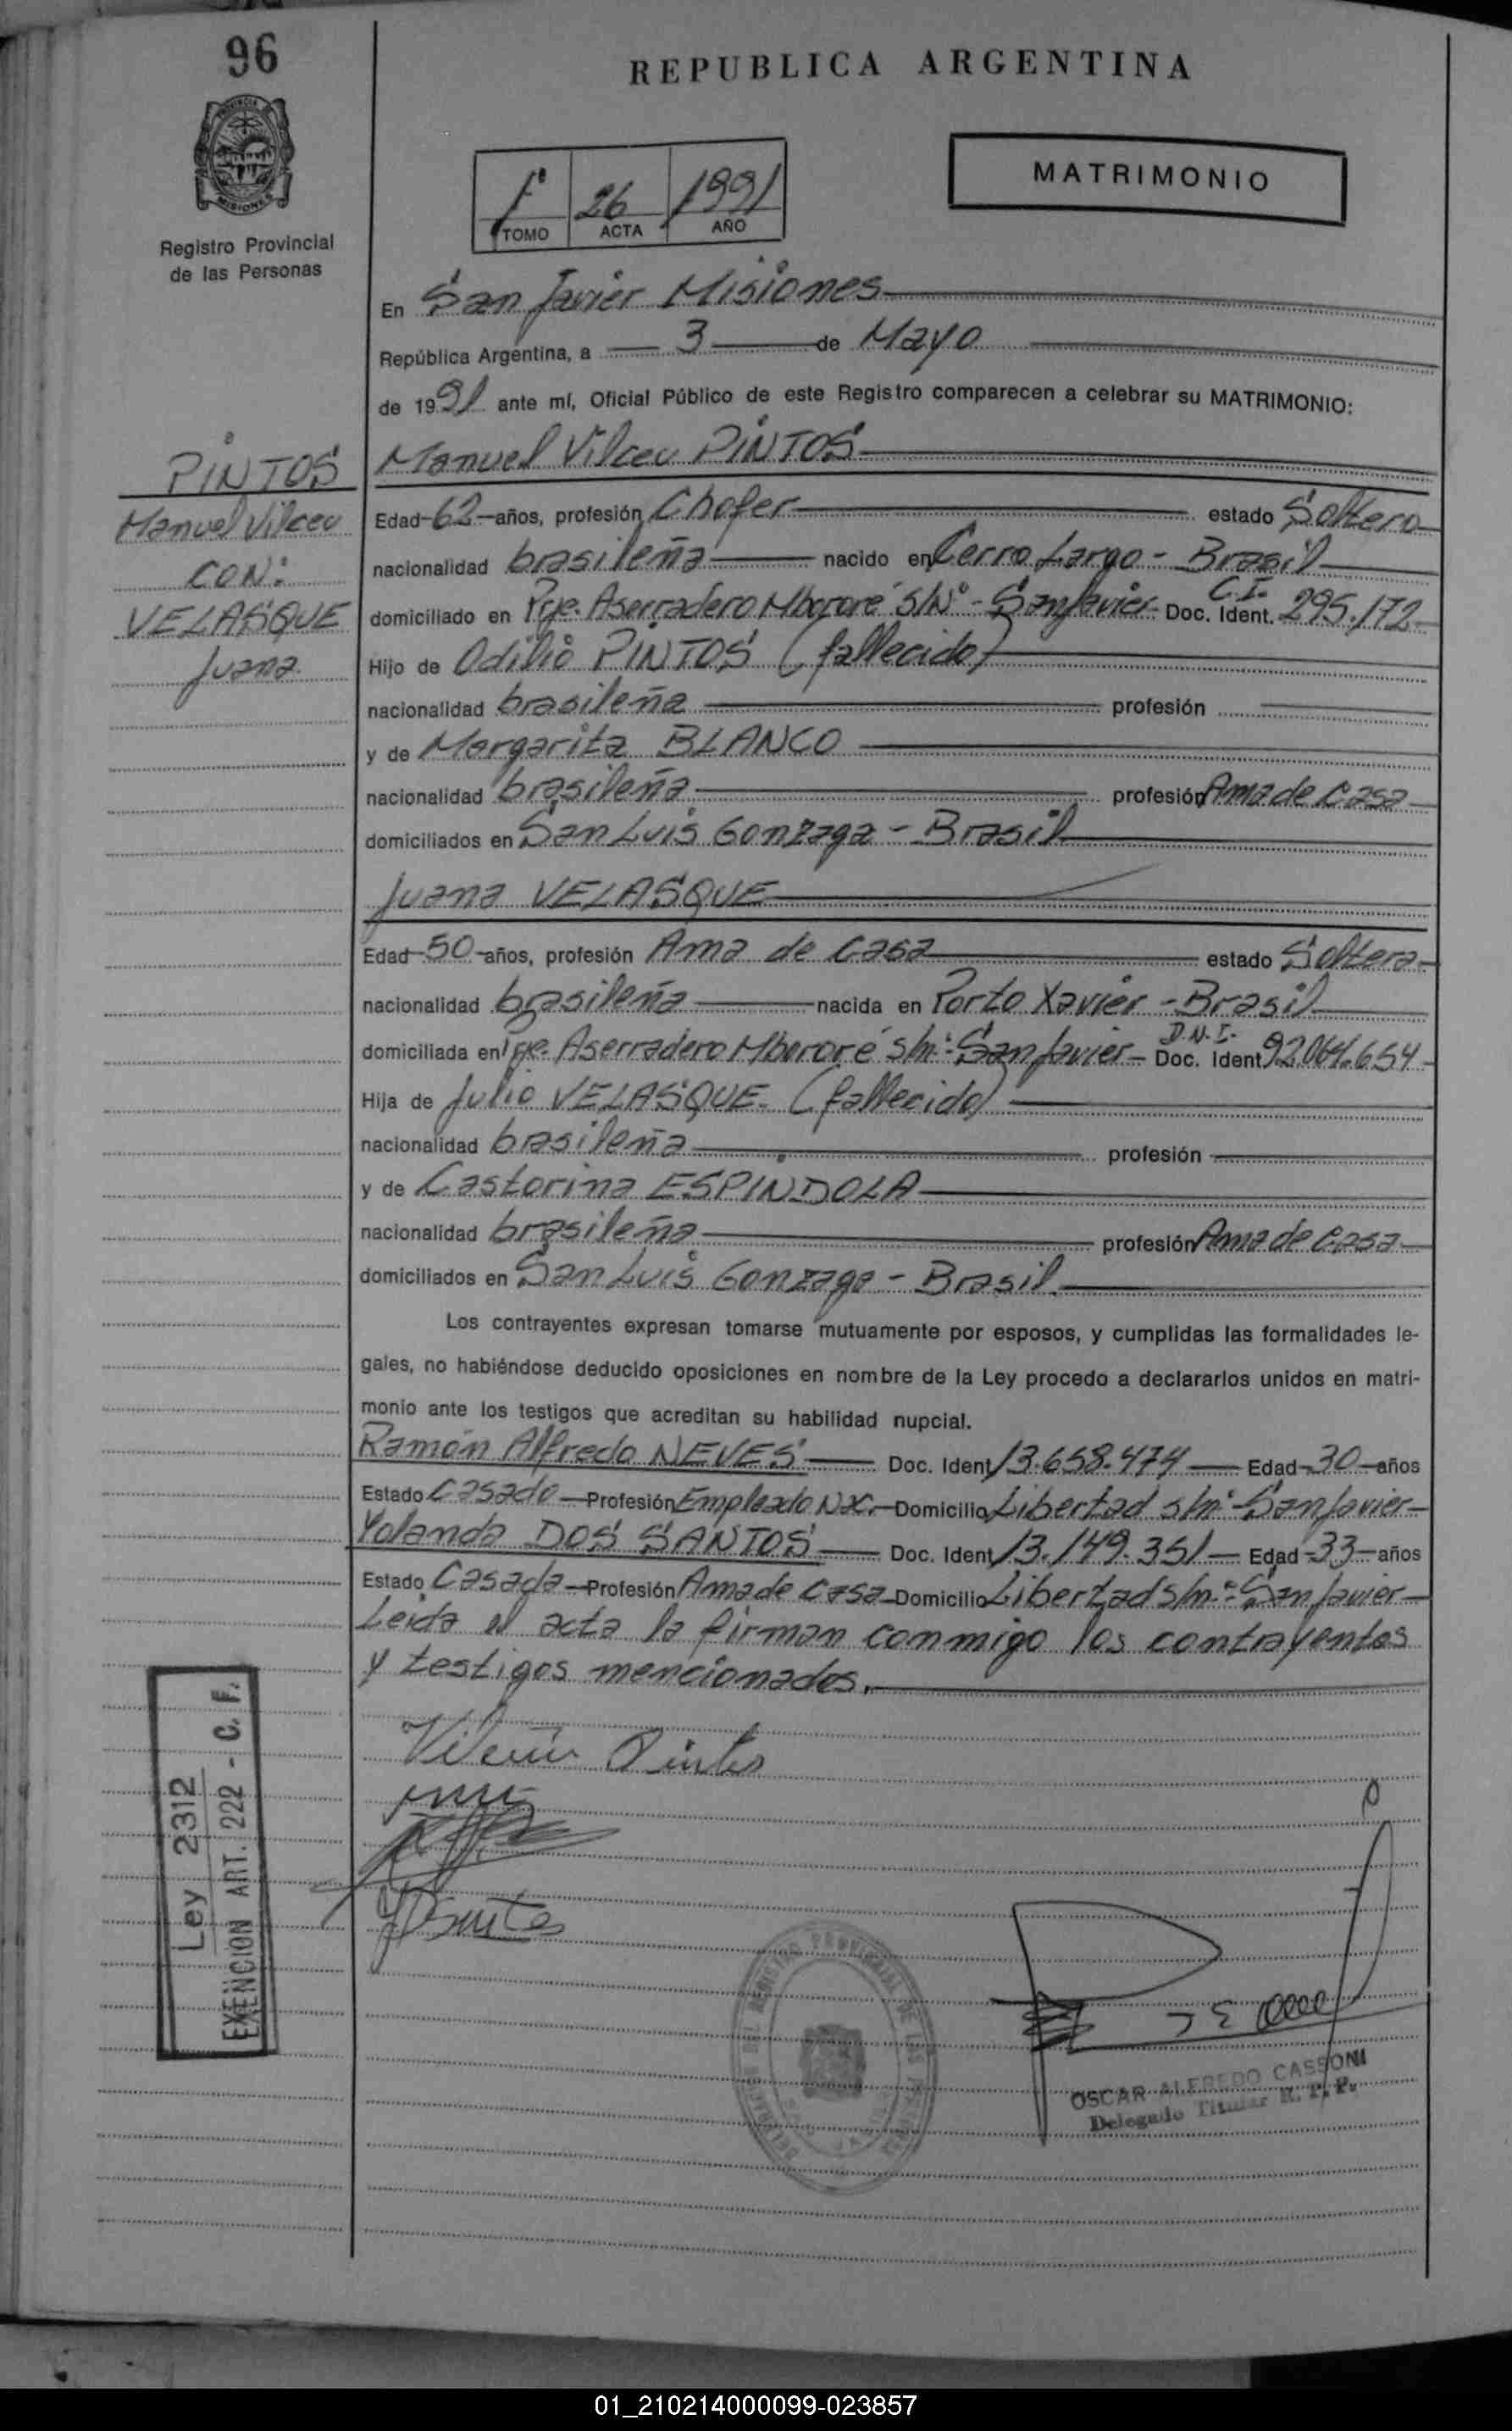 96
REPUBLICA ARGENTINA
MISIONES
Registro Provincial
de las Personas
1º 26 1991
TOMO ACTA AÑO
MATRIMONIO
En San Javier Misiones
República Argentina, a 3 de Mayo
de 1991 ante mí, Oficial Público de este Registro comparecen a celebrar su MATRIMONIO:
PINTOS
Manuel Vilceu
CON:
VELASQUE
Juana
Manuel Vilceu PINTOS
Edad 62 años, profesión Chofer estado Soltero
nacionalidad brasileña nacido en Cerro Largo - Brasil
domiciliado en Pje. Aserradero Mbororé S/Nº - San Javier Doc. Ident. C.I. 295.172
Hijo de Odilio PINTOS (fallecido)
nacionalidad brasileña profesión
y de Margarita BLANCO
nacionalidad brasileña profesión Ama de casa
domiciliados en San Luis Gonzaga - Brasil
Juana VELASQUE
Edad 50 años, profesión Ama de casa estado Soltera
nacionalidad brasileña nacida en Porto Xavier - Brasil
domiciliada en Pje. Aserradero Mbororé s/nº San Javier Doc. Ident. D.N.I. 92.064.654
Hija de Julio VELASQUE (fallecido)
nacionalidad brasileña profesión
y de Castorina ESPINDOLA
nacionalidad brasileña profesión Ama de casa
domiciliados en San Luis Gonzaga - Brasil
Los contrayentes expresan tomarse mutuamente por esposos, y cumplidas las formalidades le-
gales, no habiéndose deducido oposiciones en nombre de la Ley procedo a declararlos unidos en matri-
monio ante los testigos que acreditan su habilidad nupcial.
Ramón Alfredo NEVES Doc. Ident 13.658.474 Edad 30 años
Estado Casado Profesión Empleado Nac. Domicilio Libertad s/nº San Javier
Yolanda DOS SANTOS Doc. Ident 13.149.351 Edad 33 años
Estado Casada Profesión Ama de casa Domicilio Libertad s/nº San Javier
Leída el acta la firman conmigo los contrayentes
y testigos mencionados.
Ley 2312
EXENCION ART. 222 - C. F.
OSCAR ALFREDO CASSONI
Delegado Titular R. P. P.
01_210214000099-023857